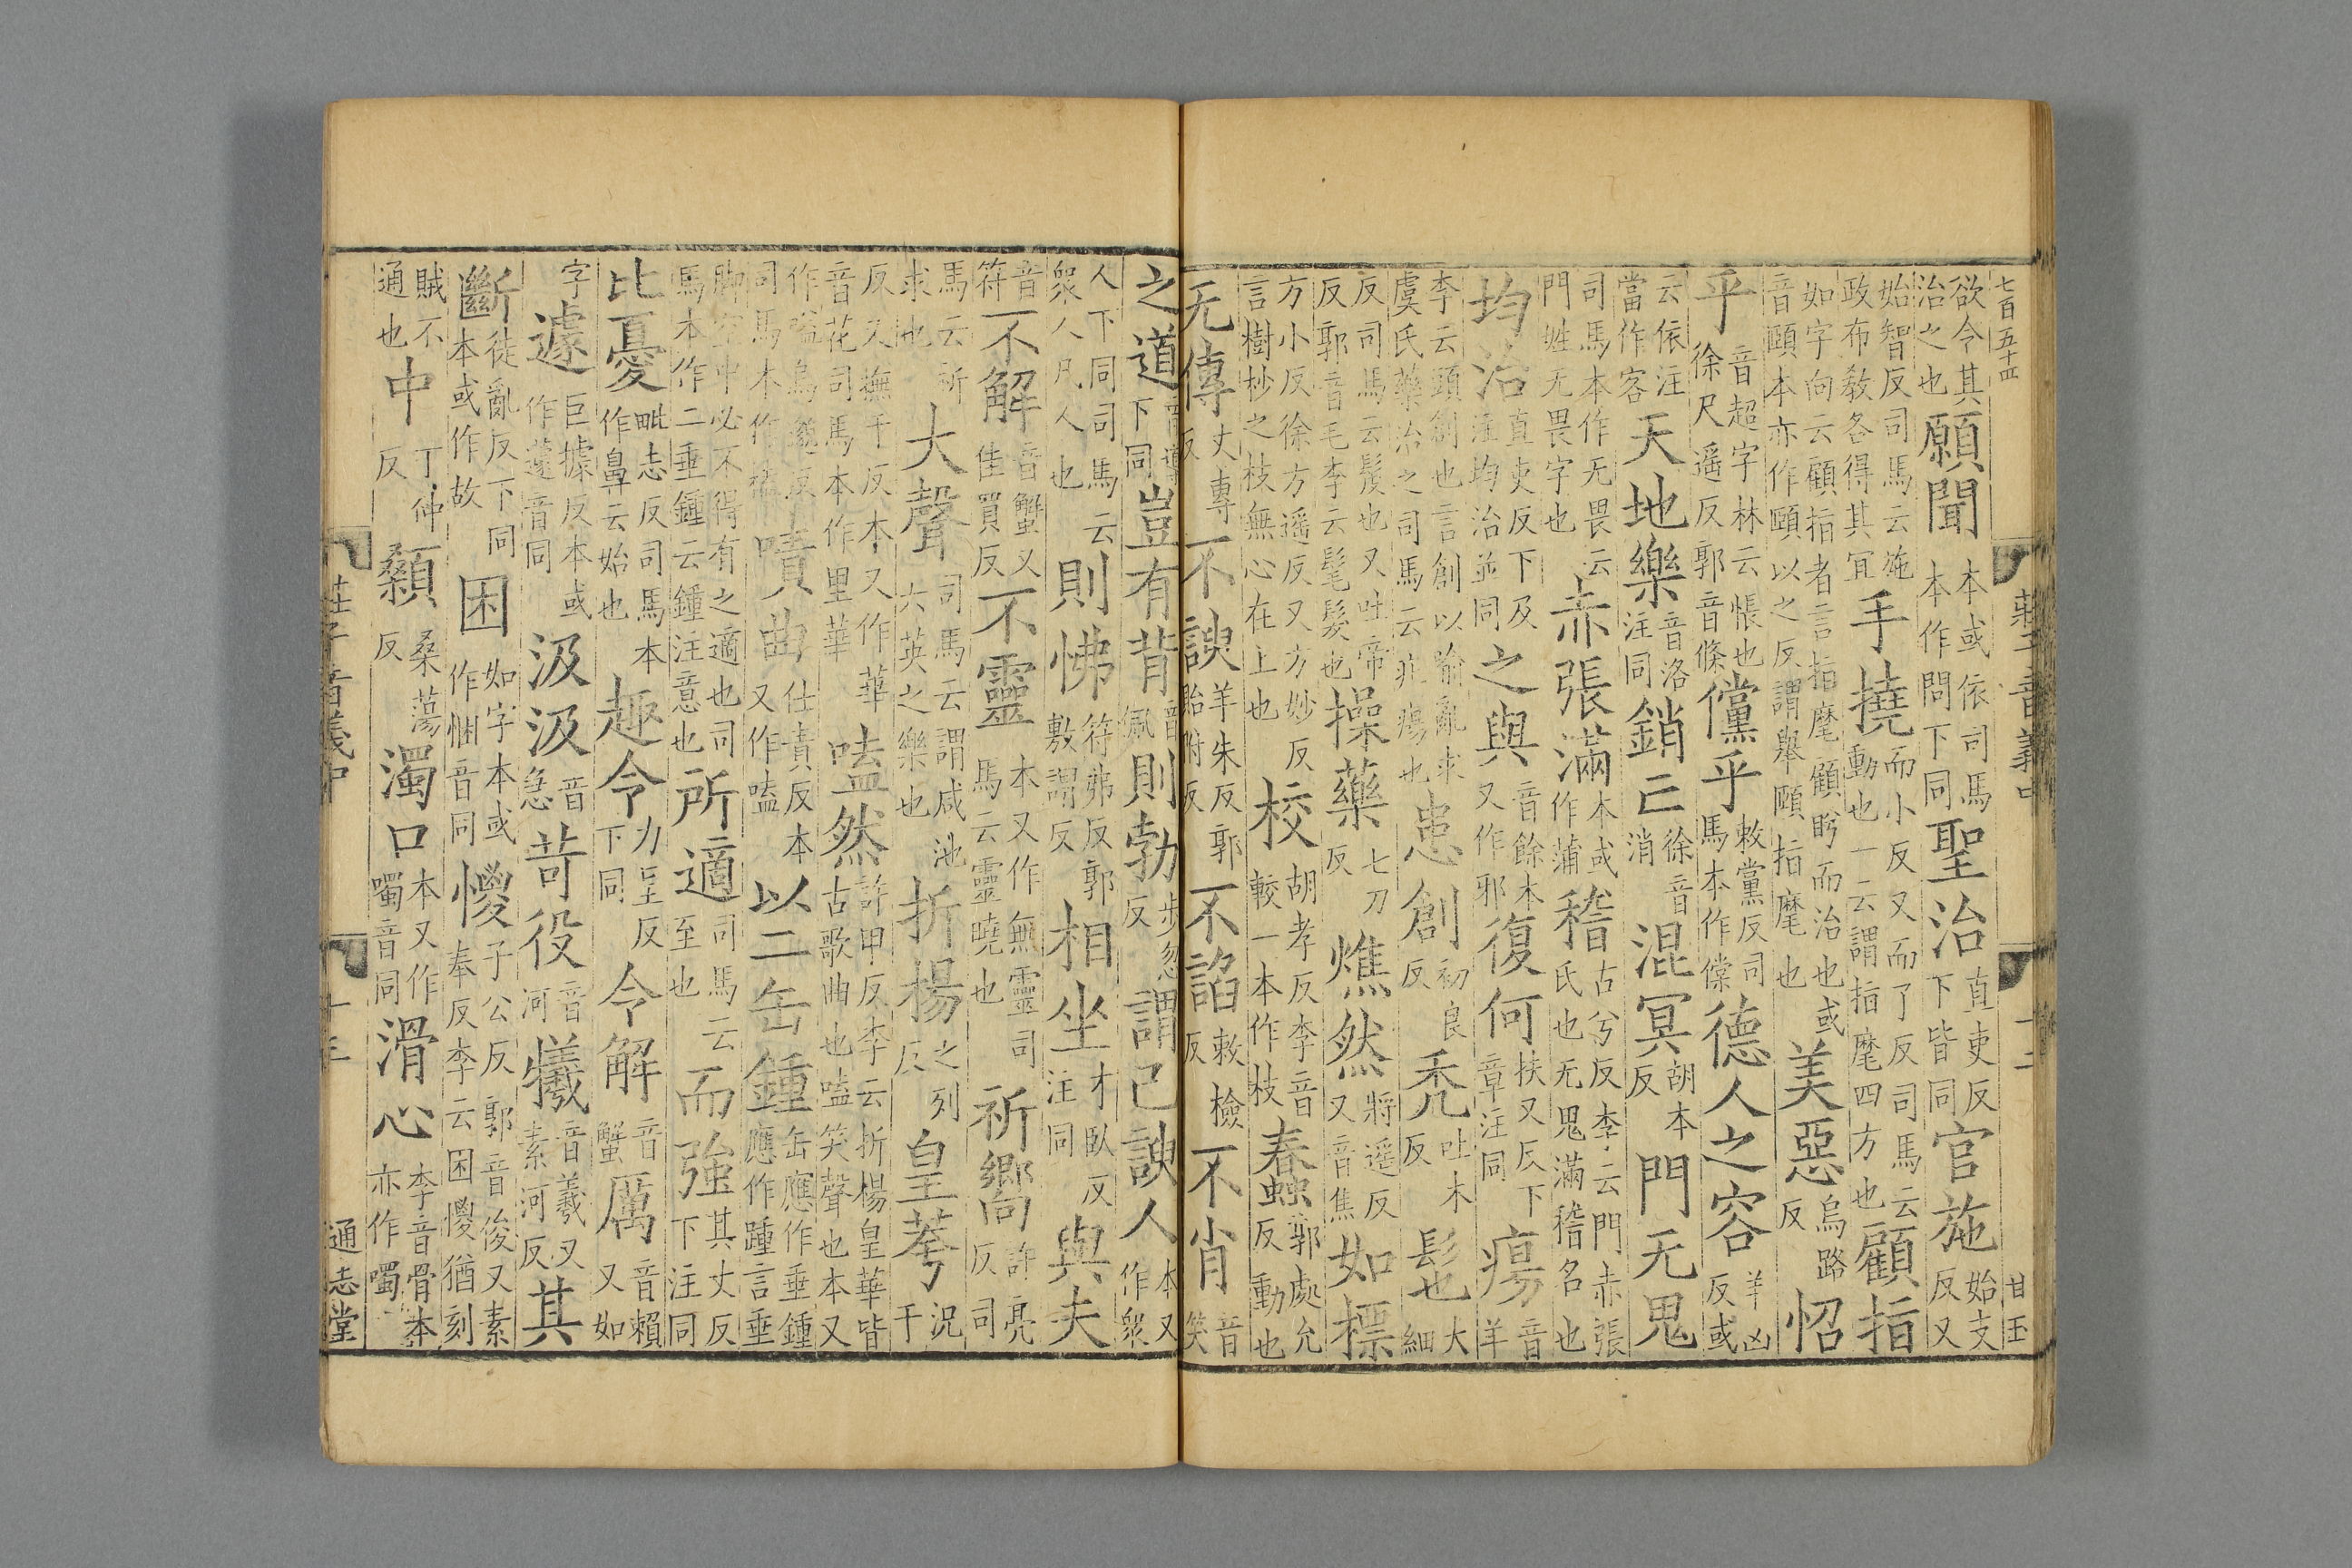 七百五十四
莊子音義中
十二
甘玉
欲令其治之也願聞本或依司馬本作問下同聖治直吏反下皆同官施始支反又
始智反司馬云施政布教各得其宜手撓而小反又而了反司馬云動也一云謂指麾四方也顧指
如字向云顧指者言指麾顧盻而治也或音頤本亦作頤以之反謂舉頤指麾也美惡烏路反怊
乎音超字林云悵也徐尺遥反郭音條儻乎敕黨反司馬本作儻德人之容羊凶反或
云依注當作客天地樂音洛注同銷亡徐音消混冥胡本反門无鬼
司馬本作无畏云門姓无畏字也赤張滿本或作蒲稽古兮反李云門赤張氏也无鬼滿稽名也
均治直吏反下及注均治並同之與音餘本又作邪復何扶又反下章注同瘍音羊
李云頭創也言創以喻亂求虞氏藥治之司馬云疕瘍也患創初良反禿吐木反髢大細
反司馬云髲也又吐帝反郭音毛李云髦髮也操藥七刀反燋然將遥反又音焦如標
方小反徐方遥反又方妙反言樹杪之枝無心在上也校胡孝反李音較一本作枝春蟲郭處允反動也
无傳丈專反不諛羊朱反郭貽附反不諂敕檢反不肖音笑
之道音導下同豈有背音佩則勃步忽反謂己諛人本又作衆
人下同司馬云衆人凡人也則怫符弗反郭敷謂反相坐才臥反注同與夫
音符不解音蟹又佳買反不靈本又作無靈司馬云靈曉也祈嚮許亮反司
馬云祈求也大聲司馬云謂咸池六英之樂也折楊之列反皇荂況于
反又撫于反本又作華音花司馬本作里華嗑然許甲反李云折楊皇華皆古歌曲也嗑笑聲也本又
作嗌烏邈反司馬本作榼嘖曲仕責反本又作嗑以二缶鍾缶應作垂鍾應作踵言垂
脚空中必不得有之適也司馬本作二垂鍾云鍾注意也所適司馬云至也而強其丈反下注同
比憂毗志反司馬本作鼻云始也趣令力呈反下同令解音蟹厲音賴又如
字遽巨據反本或作蘧音同汲汲音急苛役音河犧音羲又素河反其
斷徒亂反下同本或作故困如字本或作悃音同惾子公反郭音俊又素奉反李云困惾猶刻
賊不通也中丁仲反顙桑蕩反濁口本又作噣音同滑心李音骨本亦作噣
莊子音義中
十三
通志堂